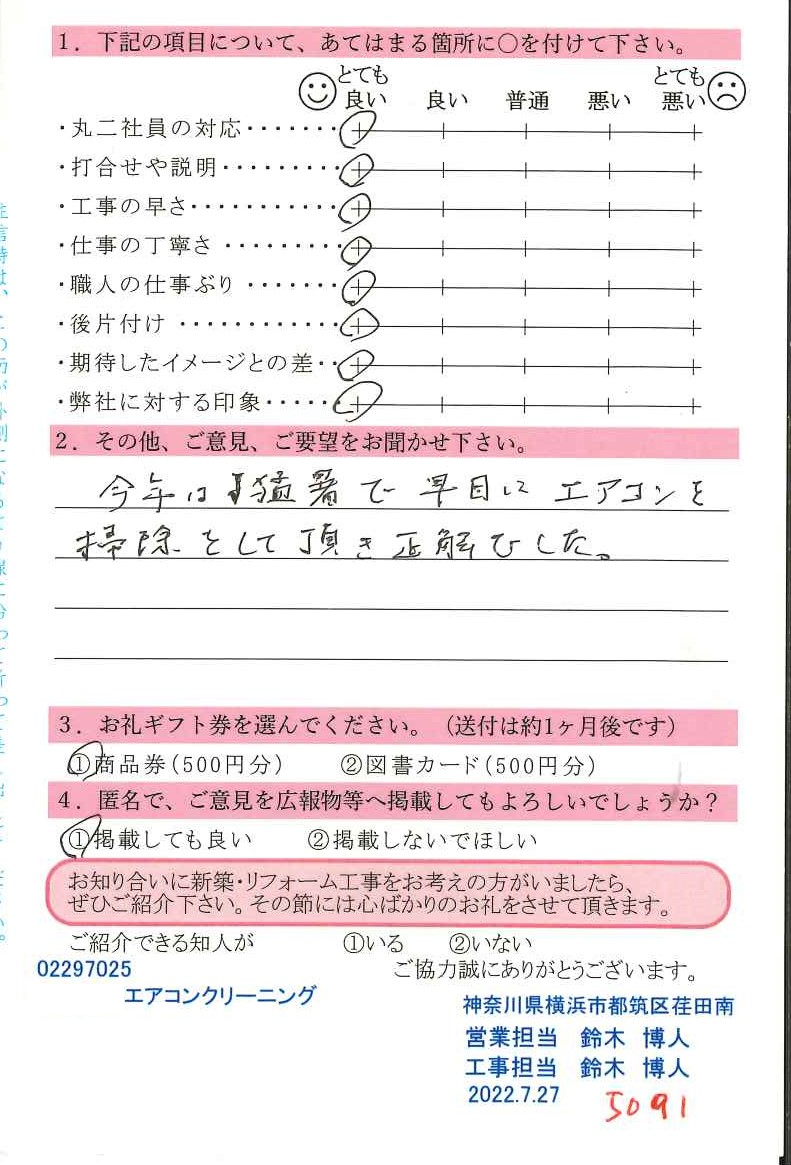 1．下記の項目について、あてはまる箇所に○を付けて下さい。
とても良い 良い 普通 悪い とても悪い
・丸二社員の対応・・・・・・・
・打合せや説明・・・・・・・・
・工事の早さ・・・・・・・・・・
・仕事の丁寧さ・・・・・・・・
・職人の仕事ぶり・・・・・・・
・後片付け・・・・・・・・・・・
・期待したイメージとの差・・
・弊社に対する印象・・・・・・
2．その他、ご意見、ご要望をお聞かせ下さい。
今年は猛暑で早目にエアコンを
掃除をして頂き正解でした。
3．お礼ギフト券を選んでください。（送付は約1ヶ月後です）
①商品券（500円分） ②図書カード（500円分）
4．匿名で、ご意見を広報物等へ掲載してもよろしいでしょうか？
①掲載しても良い ②掲載しないでほしい
お知り合いに新築・リフォーム工事をお考えの方がいましたら、
ぜひご紹介下さい。その節には心ばかりのお礼をさせて頂きます。
ご紹介できる知人が ①いる ②いない
02297025
ご協力誠にありがとうございます。
エアコンクリーニング
神奈川県横浜市都筑区荏田南
営業担当 鈴木 博人
工事担当 鈴木 博人
2022.7.27
5091